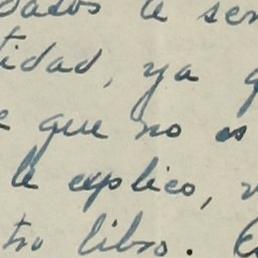 le ser
tidad, ya q
e que no es
le explico, v
tro libro.